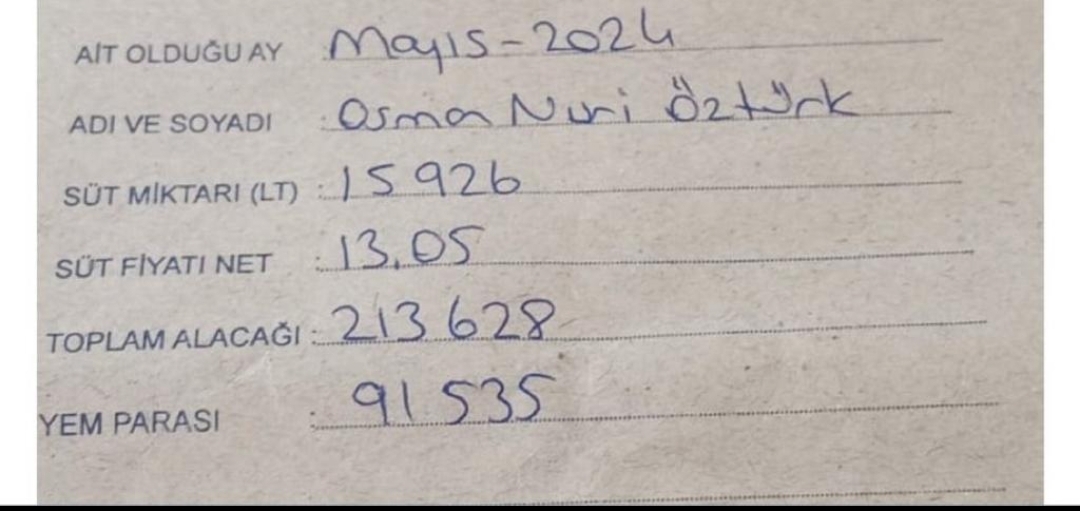 AİT OLDUĞU AY : Mayıs-2024
ADI VE SOYADI : Osman Nuri Öztürk
SÜT MİKTARI (LT) : 15926
SÜT FİYATI NET : 13.05
TOPLAM ALACAĞI : 213628
YEM PARASI : 91535